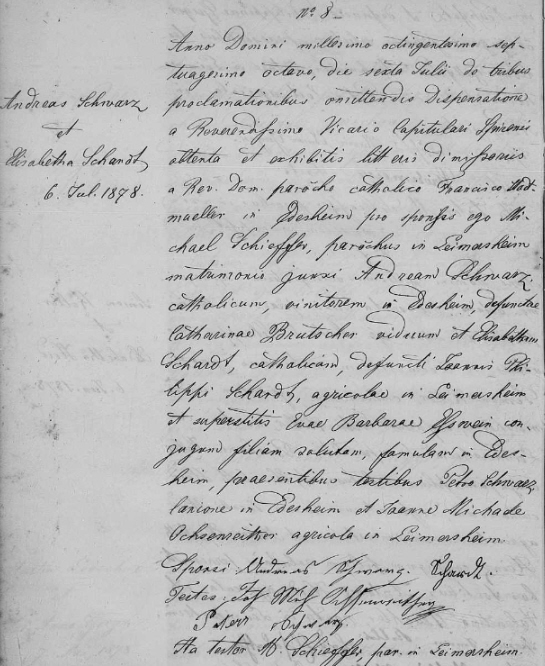 nº 8
Andreas Schwarz
et
Elisabetha Schardt
6. Jul. 1878.
Anno Domini millesimo octingentesimo sep-
tuagesimo octavo, die sexta Julii de tribus
proclamationibus omittendis Dispensatione
a Reverendissimo Vicario Capitulari Spirensis
obtenta et exhibitis litteris dimissoriis
a Rev. Dom. parocho catholico Francisco
maeller in Edesheim pro sponsis ego Mi-
chael Schieffler, parochus in Leimersheim
matrimonio junxi Andream Schwarz,
catholicum, vinitorem in Edesheim, defunctae
Catharinae Brutscher viduum et Elisabetham
Schardt, catholicam, defuncti Joannis Phi-
lippi Schardt, agricolae in Leimersheim
et superstitis Evae Barbarae Esswein con-
jugum filiam solutam, famulam in Edes-
heim, praesentibus testibus Petro Schwarz
lanione in Edesheim et Joanne Michaele
Ochsenreither agricola in Leimersheim
Sponsi: Andreas Schwarz. Schardt.
Testes: Joh Mich Ochsenreither
Peter
Ita testor M. Schieffler, par. in Leimersheim